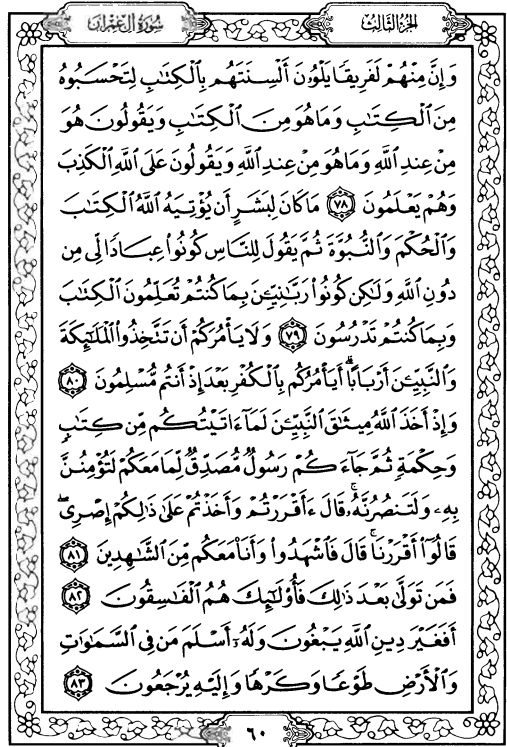 سُورَةُ آلِ عِمْرَانَ
الجُزْءُ الثَّالِثُ
وَإِنَّ مِنْهُمْ لَفَرِيقًا يَلْوُۥنَ أَلْسِنَتَهُم بِالْكِتَٰبِ لِتَحْسَبُوهُ
مِنَ الْكِتَٰبِ وَمَا هُوَ مِنَ الْكِتَٰبِ وَيَقُولُونَ هُوَ
مِنْ عِندِ اللَّهِ وَمَا هُوَ مِنْ عِندِ اللَّهِ وَيَقُولُونَ عَلَى اللَّهِ الْكَذِبَ
وَهُمْ يَعْلَمُونَ ٧٨ مَا كَانَ لِبَشَرٍ أَن يُؤْتِيَهُ اللَّهُ الْكِتَٰبَ
وَالْحُكْمَ وَالنُّبُوَّةَ ثُمَّ يَقُولَ لِلنَّاسِ كُونُوا۟ عِبَادًا لِّى مِن
دُونِ اللَّهِ وَلَٰكِن كُونُوا۟ رَبَّٰنِيِّۦنَ بِمَا كُنتُمْ تُعَلِّمُونَ الْكِتَٰبَ
وَبِمَا كُنتُمْ تَدْرُسُونَ ٧٩ وَلَا يَأْمُرَكُمْ أَن تَتَّخِذُوا۟ الْمَلَٰٓئِكَةَ
وَالنَّبِيِّۦنَ أَرْبَابًا ۗ أَيَأْمُرُكُم بِالْكُفْرِ بَعْدَ إِذْ أَنتُم مُّسْلِمُونَ ٨٠
وَإِذْ أَخَذَ اللَّهُ مِيثَٰقَ النَّبِيِّۦنَ لَمَآ ءَاتَيْتُكُم مِّن كِتَٰبٍ
وَحِكْمَةٍ ثُمَّ جَآءَكُمْ رَسُولٌ مُّصَدِّقٌ لِّمَا مَعَكُمْ لَتُؤْمِنُنَّ
بِهِۦ وَلَتَنصُرُنَّهُۥ ۚ قَالَ ءَأَقْرَرْتُمْ وَأَخَذْتُمْ عَلَىٰ ذَٰلِكُمْ إِصْرِى ۖ
قَالُوٓا۟ أَقْرَرْنَا ۚ قَالَ فَاشْهَدُوا۟ وَأَنَا۠ مَعَكُم مِّنَ الشَّٰهِدِينَ ٨١
فَمَن تَوَلَّىٰ بَعْدَ ذَٰلِكَ فَأُو۟لَٰٓئِكَ هُمُ الْفَٰسِقُونَ ٨٢
أَفَغَيْرَ دِينِ اللَّهِ يَبْغُونَ وَلَهُۥٓ أَسْلَمَ مَن فِى السَّمَٰوَٰتِ
وَالْأَرْضِ طَوْعًا وَكَرْهًا وَإِلَيْهِ يُرْجَعُونَ ٨٣
٦٠